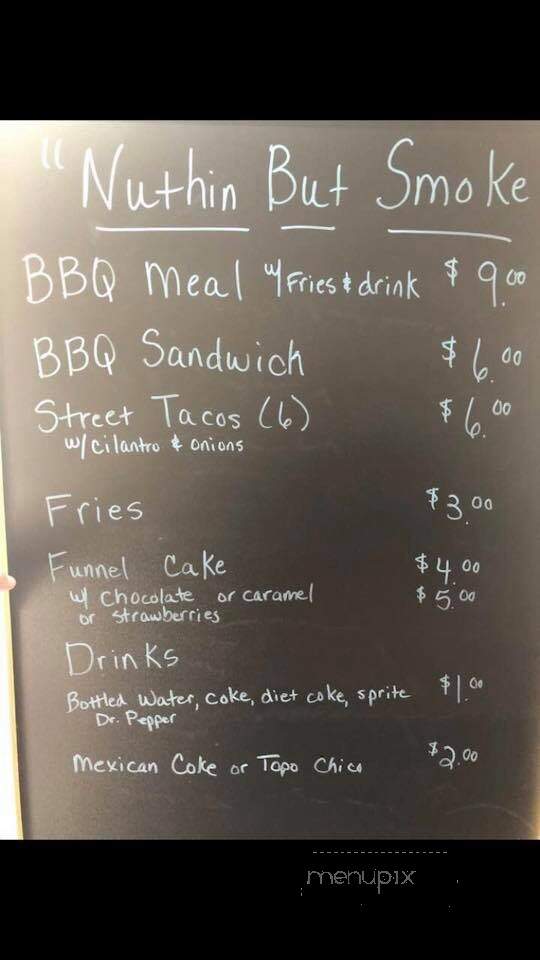 "Nuthin But Smoke
BBQ Meal w/Fries & drink $9.00
BBQ Sandwich $6.00
Street Tacos (6) $6.00
w/cilantro & onions
Fries $3.00
Funnel Cake $4.00
w/ Chocolate or caramel $5.00
or strawberries
Drinks
Bottled Water, Coke, diet coke, sprite $1.00
Dr. Pepper
Mexican Coke or Topo Chico $2.00
menupix